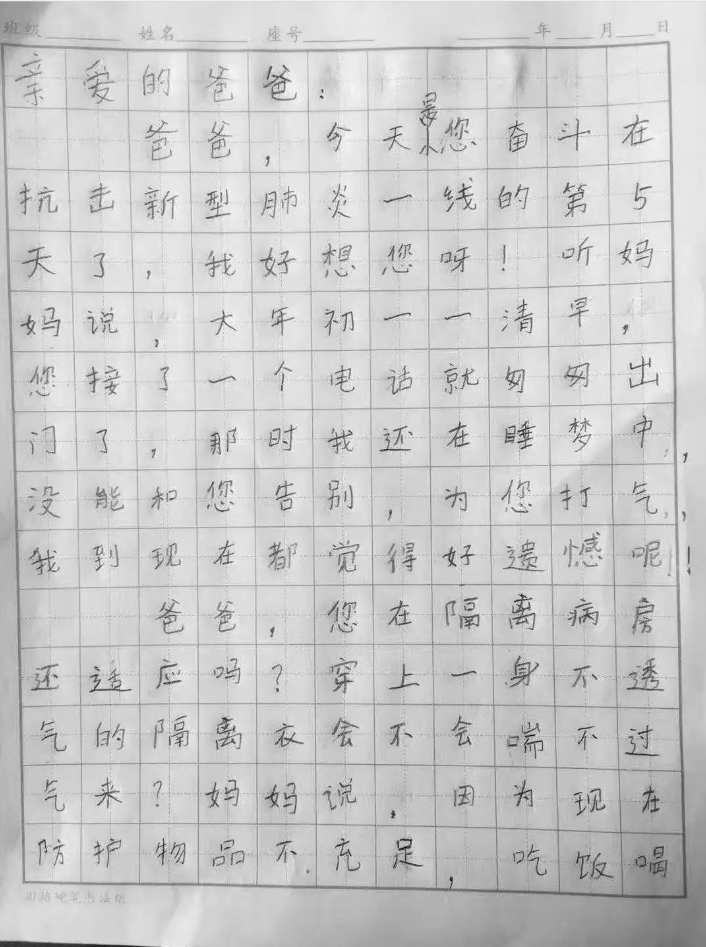 班级 姓名 座号 年 月 日
亲爱的爸爸：
爸爸，今天是您奋斗在
抗击新型肺炎一线的第5
天了，我好想您呀！听妈
妈说，大年初一一清早，
您接了一个电话就匆匆出
门了，那时我还在睡梦中，
没能和您告别，为您打气，
我到现在都觉得好遗憾呢！
爸爸，您在隔离病房
还适应吗？穿上一身不透
气的隔离衣会不会喘不过
气来？妈妈说，因为现在
防护物品不充足，吃饭喝